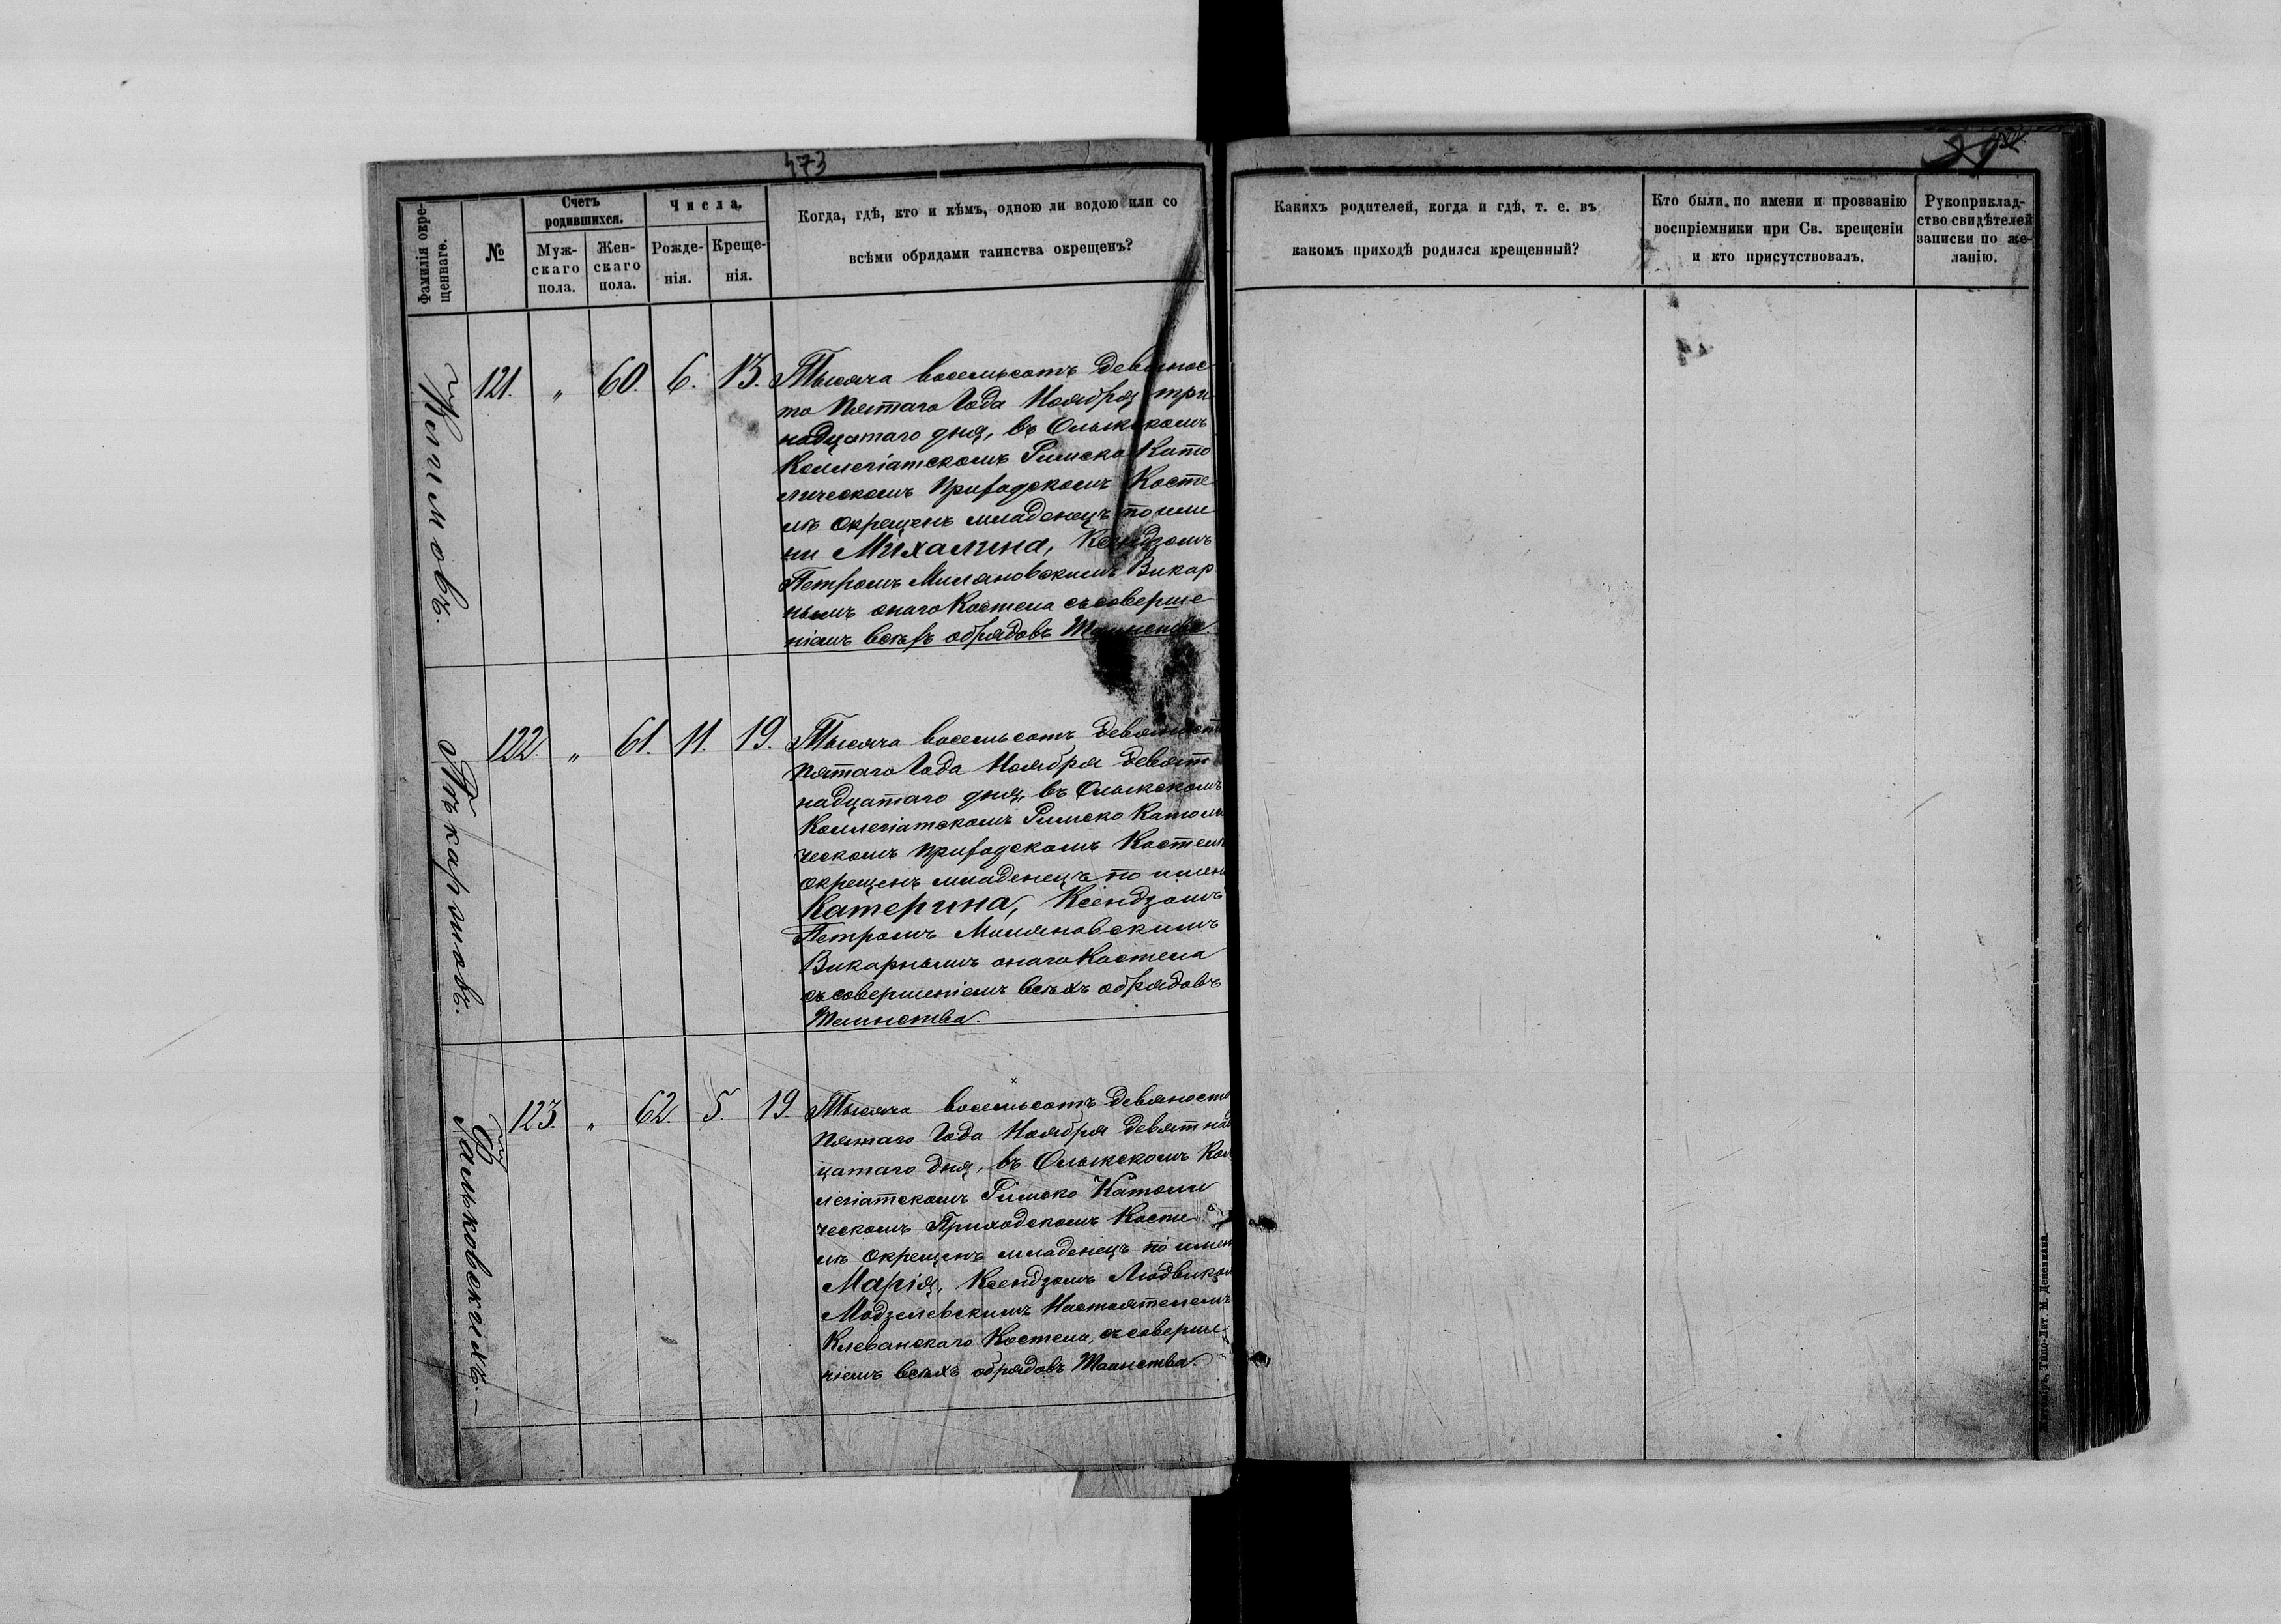 473
Фамилія окре-
щеннаго.
№
Счетъ
родившихся.
Муж-
скаго
пола.
Жен-
скаго
пола.
Числа.
Рожде-
нія.
Креще-
нія.
Когда, гдѣ, кто и кѣмъ, одною ли водою или со
всѣми обрядами таинства окрещенъ?
121. " 60. 6. 13.
Тысяча восемьсотъ девянос
то пятаго Года Ноября три
надцатаго дня, въ Олыкскомъ
Коллегіатскомъ Римско Като
лическомъ приходскомъ Косте
лѣ окрещенъ младенецъ по име
ни Михалина, Ксендзомъ
Петромъ Миляновскимъ Викар
нымъ онаго Костела съ соверше
ніемъ всѣхъ обрядовъ Таинства.
Пѣкарзовъ.
122. " 61. 11. 19.
Тысяча восемьсотъ девяносто
пятаго Года Ноября девят
надцатаго дня, въ Олыкскомъ
Коллегіатскомъ Римско Католи
ческомъ приходскомъ Костелѣ
окрещенъ младенецъ по имени
Катерина, Ксендзомъ
Петромъ Миляновскимъ
Викарнымъ онаго Костела
съ совершеніемъ всѣхъ обрядовъ
Таинства.
123. " 62. 5. 19.
Тысяча восемьсотъ девяносто
пятаго Года Ноября девятнад
цатаго дня, въ Олыкскомъ Кол
легіатскомъ Римско Католи
ческомъ Приходскомъ Косте
лѣ окрещенъ младенецъ по имен
Марія, Ксендзомъ Людвикомъ
Модзелевскимъ Настоятелемъ
Клеванскаго Костела, съ соверше
ніемъ всѣхъ обрядовъ Таинства.
Каких​ъ родителей, когда и гдѣ, т. е. въ
какомъ приходѣ родился крещенный?
Кто были по имени и прозванію
воспріемники при Св. крещеніи
и кто присутствовалъ.
Рукоприклад-
ство свидѣтелей
записки по же-
ланію.
Житоміръ, Типо-Лит. М. Дененмана.